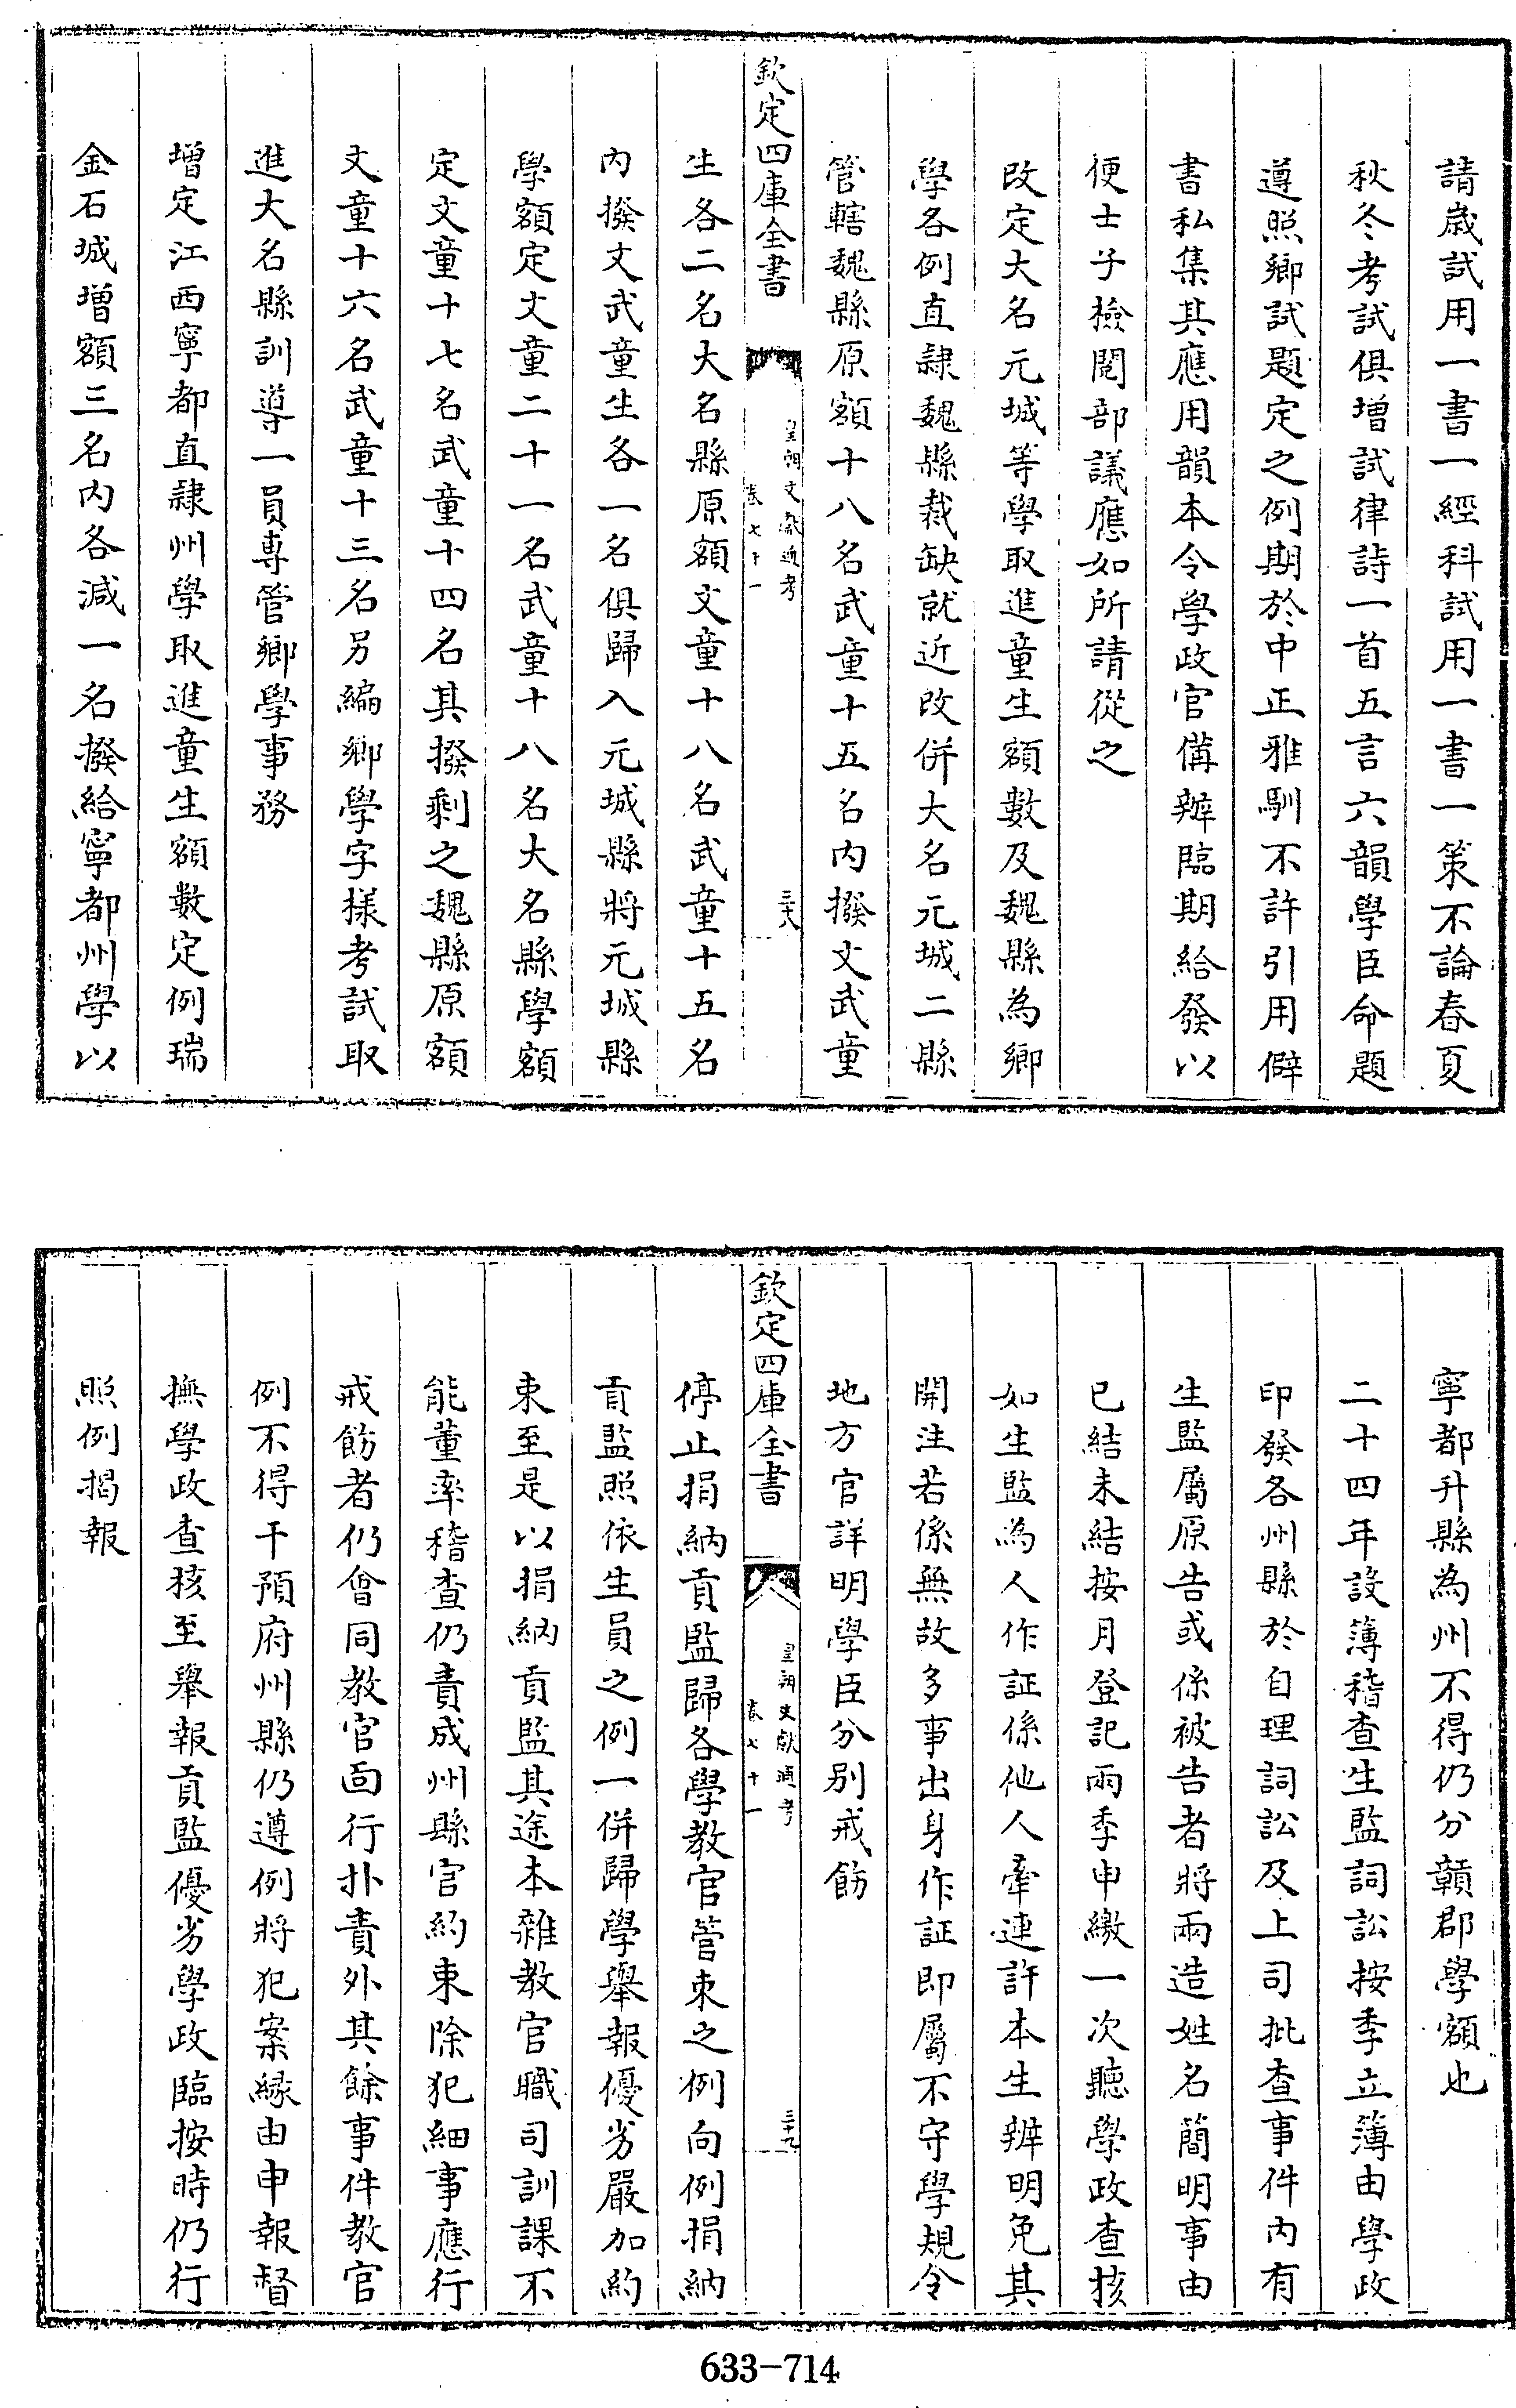 請歲試用一書一經科試用一書一策不論春夏
秋冬考試俱增試律詩一首五言六韻學臣命題
遵照鄉試題定之例期於中正雅馴不許引用僻
書私集其應用韻本令學政官備辦臨期給發以
便士子檢閱部議應如所請從之
改定大名元城等學取進童生額數及魏縣為鄉
學各例直隸魏縣裁缺就近改併大名元城二縣
管轄魏縣原額十八名武童十五名內撥文武童
欽定四庫全書
皇朝文獻通考
卷七十一
三十八
生各二名大名縣原額文童十八名武童十五名
內撥文武童生各一名俱歸入元城縣將元城縣
學額定文童二十一名武童十八名大名縣學額
定文童十七名武童十四名其撥剩之魏縣原額
文童十六名武童十三名另編鄉學字樣考試取
進大名縣訓導一員專管鄉學事務
增定江西寧都直隸州學取進童生額數定例瑞
金石城增額三名內各減一名撥給寧都州學以
寧都升縣為州不得仍分贛郡學額也
二十四年設簿稽查生監詞訟按季立簿由學政
印發各州縣於自理詞訟及上司批查事件內有
生監屬原告或係被告者將兩造姓名簡明事由
已結未結按月登記兩季申繳一次聽學政查核
如生監為人作証係他人牽連許本生辨明免其
開注若係無故多事出身作証即屬不守學規令
地方官詳明學臣分別戒飭
欽定四庫全書
皇朝文獻通考
卷七十一
三十九
停止捐納貢監歸各學教官管束之例向例捐納
貢監照依生員之例一併歸學舉報優劣嚴加約
束至是以捐納貢監其途本雜教官職司訓課不
能董率稽查仍責成州縣官約束除犯細事應行
戒飭者仍會同教官面行扑責外其餘事件教官
例不得干預府州縣仍遵例將犯案緣由申報督
撫學政查核至舉報貢監優劣學政臨按時仍行
照例揭報
633-714